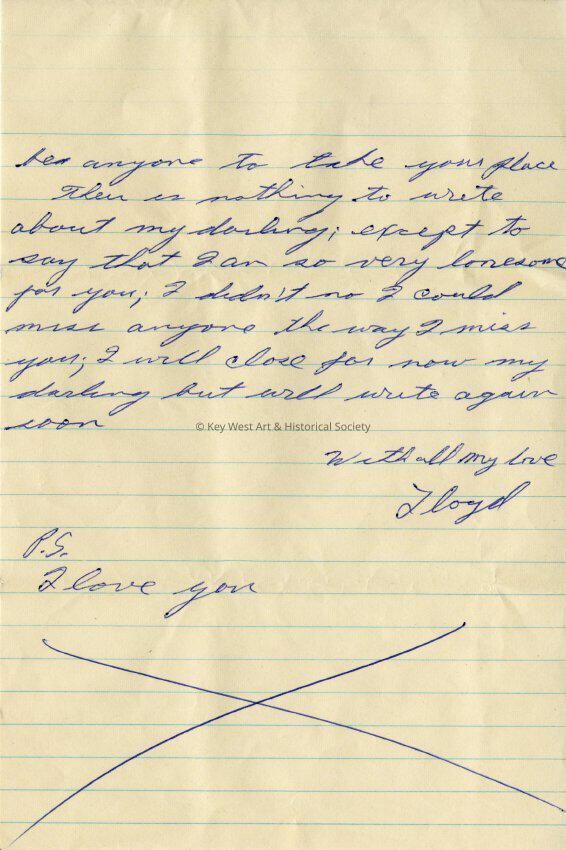 bea anyone to take your place
Ther is nothing to write
about my darling; except to
say that I am so very lonesome
for you; I didn't no I could
miss anyone the way I miss
you; I will close for now my
darling but will write again
soon
© Key West Art & Historical Society
With all my love
Floyd
P.S.
I love you